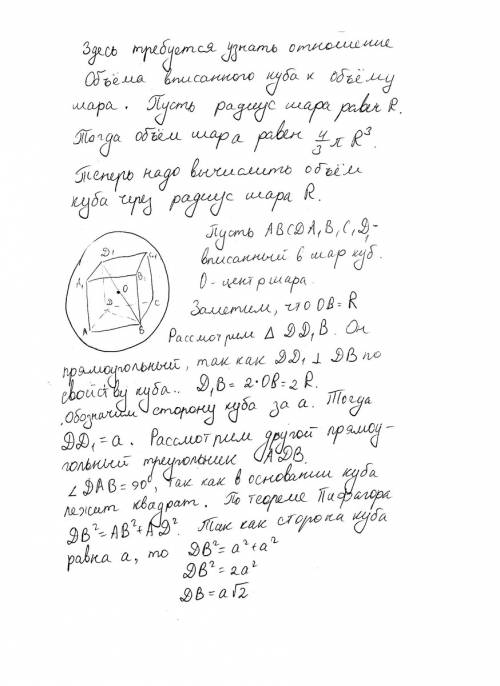 Здесь требуется узнать отношение
Объёма вписанного куба к объёму
шара. Пусть радиус шара равен R.
Тогда объём шара равен 4/3 π R³.
Теперь надо вычислить объём
куба через радиус шара R.
Пусть ABCDA₁B₁C₁D₁-
вписанный в шар куб.
O - центр шара.
Заметим, что OB = R
Рассмотрим △ DD₁B. Он
прямоугольный, так как DD₁ ⊥ DB по
свойству куба.. D₁B = 2·OB = 2 R.
Обозначим сторону куба за a. Тогда
DD₁ = a. Рассмотрим другой прямоу-
гольный треугольник ADB.
∠DAB = 90°, так как в основании куба
лежит квадрат. По теореме Пифагора
DB² = AB² + AD². Так как сторона куба
равна a, то DB² = a² + a²
DB² = 2a²
DB = a√2
D₁
C₁
A₁
B₁
O
D
C
A
B